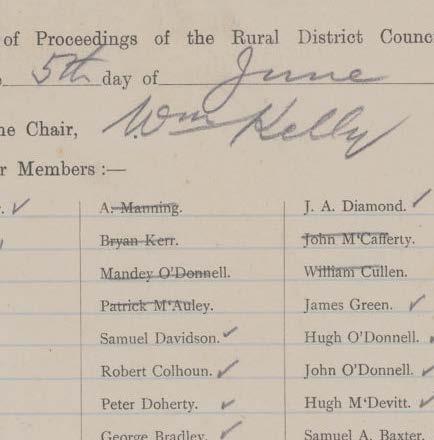 of Proceedings of the Rural District Counc
5th day of June
ne Chair, Wm Kelly
r Members :—
A. Manning. J. A. Diamond. ✓
Bryan Kerr. John M‘Cafferty.
Mandey O’Donnell. William Cullen.
Patrick M‘Auley. James Green. ✓
Samuel Davidson. ✓ Hugh O’Donnell.
Robert Colhoun. ✓ John O’Donnell. ✓
Peter Doherty. ✓ Hugh M‘Devitt. ✓
George Bradley. ✓ Samuel A. Baxter.